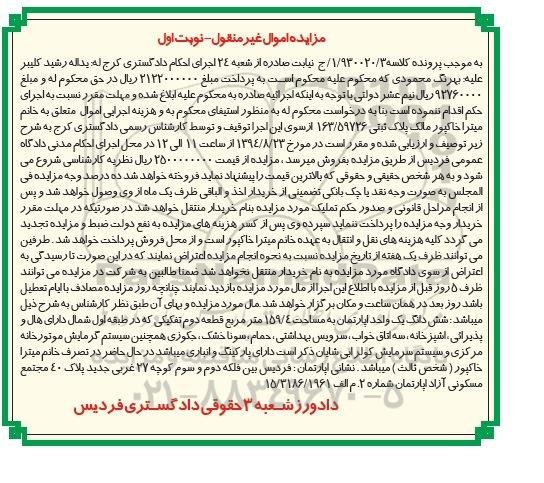 مزایده اموال غیرمنقول - نوبت اول
به موجب پرونده کلاسه ۱/۹۳۰۰۲۰/۳/ ج نیابت صادره از شعبه ۲۴ اجرای احکام دادگستری کرج له: یداله رشید کلیبر
علیه: بهرنگ محمودی که محکوم علیه محکوم است به پرداخت مبلغ ۲۱۲۲۰۰۰۰۰۰ ریال در حق محکوم له و مبلغ
۹۲۷۶۰۰۰۰ ریال نیم عشر دولتی با توجه به اینکه اجرائیه صادره به محکوم علیه ابلاغ شده و مهلت مقرر نسبت به اجرای
حکم اقدام ننموده است بنا به درخواست محکوم له به منظور استیفای محکوم به و هزینه اجرایی اموال متعلق به خانم
میترا خاکپور مالک پلاک ثبتی ۱۶۳/۵۹۷۲۶ ازسوی این اجرا توقیف و توسط کارشناس رسمی دادگستری کرج به شرح
زیر توصیف و ارزیابی شده و مقرر است در مورخ ۱۳۹۴/۸/۲۳ از ساعت ۱۱ الی ۱۲ در محل اجرای احکام مدنی دادگاه
عمومی فردیس از طریق مزایده بفروش میرسد ، مزایده از قیمت ۲۵۰۰۰۰۰۰۰۰ ریال نظریه کارشناسی شروع می
شود و به هر شخص حقیقی و حقوقی که بالاترین قیمت را پیشنهاد نماید فروخته خواهد شد ده درصد وجه مزایده فی
المجلس به صورت وجه نقد یا چک بانکی تضمینی از خریدار اخذ و الباقی ظرف یک ماه از وی وصول خواهد شد و پس
از انجام مراحل قانونی و صدور حکم تملیک مورد مزایده بنام خریدار منتقل خواهد شد در صورتیکه در مهلت مقرر
خریدار وجه مزایده را پرداخت ننماید سپرده وی پس از کسر هزینه های مزایده به نفع دولت ضبط و مزایده تجدید
می گردد کلیه هزینه های نقل و انتقال به عهده خانم میترا خاکپور است و از محل فروش پرداخت خواهد شد . طرفین
می توانند ظرف یک هفته از تاریخ مزایده نسبت به نحوه انجام مزایده اعتراض نمایند که در این صورت تا رسیدگی به
اعتراض از سوی دادگاه مورد مزایده به نام خریدار منتقل نخواهد شد ضمنا طالبین به شرکت در مزایده می توانند
ظرف ۵ روز قبل از مزایده با اطلاع این اجرا از مال مورد مزایده بازدید نمایند چنانچه روز مزایده مصادف با ایام تعطیل
باشد روز بعد در همان ساعت و مکان برگزار خواهد شد .مال مورد مزایده و بهای آن طبق نظر کارشناس به شرح ذیل
میباشد : شش دانگ یک واحد اپارتمان به مساحت ۱۵۹/۴ متر مربع قطعه دوم تفکیکی که در طبقه اول شمال دارای هال و
پذیرائی ،اشپزخانه ،سه اتاق خواب ، سرویس بهداشتی ، حمام ، سونا خشک ، جکوزی همچنین سیستم گرمایش موتورخانه
مرکزی و سیستم سرمایش کولر ابی شایان ذکر است دارای پارکینگ و انباری میباشد در حال حاضر در تصرف خانم میترا
خاکپور ( شخص ثالث ) میباشد . نشانی اپارتمان : فردیس بین فلکه دوم و سوم کوچه ۲۷ غربی جدید پلاک ۴۰ مجتمع
مسکونی آزاد اپارتمان شماره ۲. م الف ۱۵/۳۱۸۶/۱۹۶۱
۰۲۱-۸۸۳۴۹۶۷۰-۵
دادورز شعبه ۳ حقوقی دادگستری فردیس